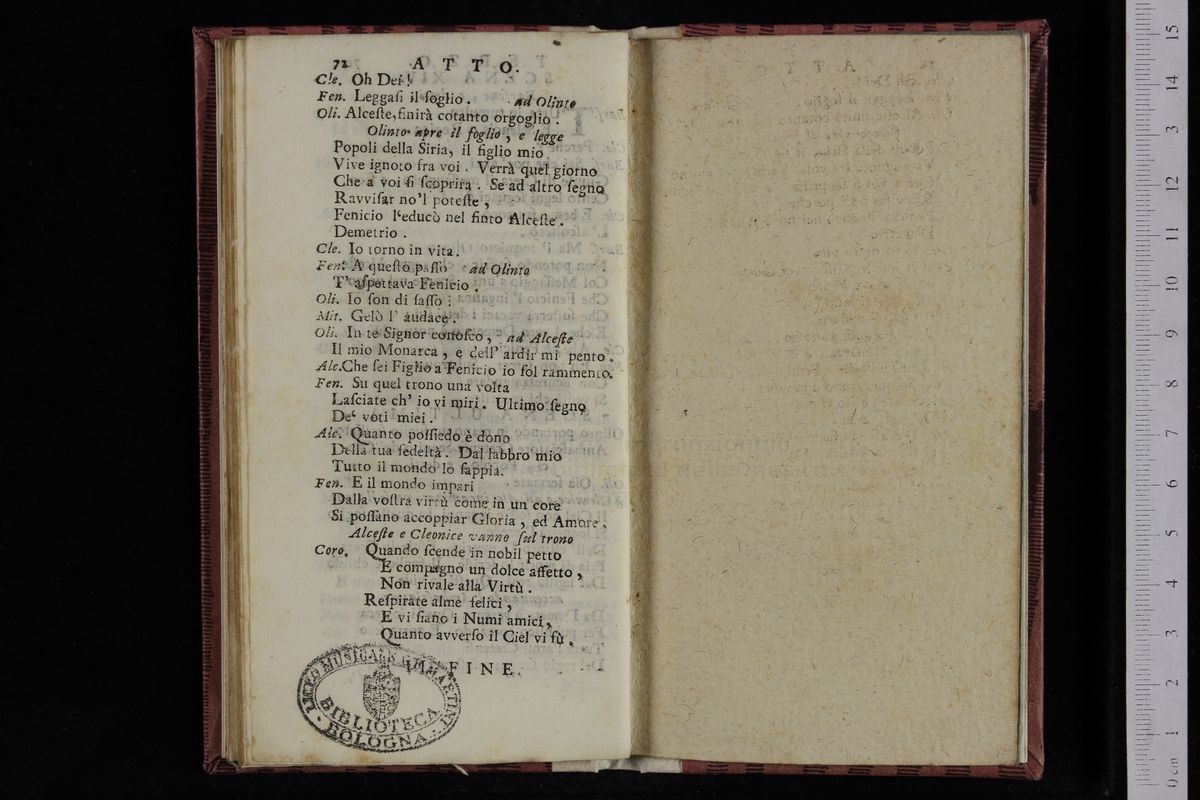 72 ATTO.
Cle. Oh Dei!
Fen. Leggasi il foglio. ad Olinto
Oli. Alceste, finirà cotanto orgoglio.
Olinto apre il foglio, e legge
Popoli della Siria, il figlio mio
Vive ignoto fra voi. Verrà quel giorno
Che a voi si scoprirà. Se ad altro segno
Ravvisar no'l poteste,
Fenicio l'educò nel finto Alceste.
Demetrio.
Cle. Io torno in vita.
Fen. A questo passo ad Olinto
T'aspettava Fenicio.
Oli. Io son di sasso.
Mit. Gelò l'audace.
Oli. In te Signor conosco, ad Alceste
Il mio Monarca, e dell'ardir mi pento.
Alc. Che sei Figlio a Fenicio io sol rammento.
Fen. Su quel trono una volta
Lasciate ch'io vi miri. Ultimo segno
De' voti miei.
Alc. Quanto possiedo è dono
Della tua fedeltà. Dal labbro mio
Tutto il mondo lo sappia.
Fen. E il mondo impari
Dalla vostra virtù come in un core
Si possano accoppiar Gloria, ed Amore.
Alceste e Cleonice vanno sul trono
Coro. Quando scende in nobil petto
E compagno un dolce affetto,
Non rivale alla Virtù.
Respirate alme felici,
E vi siano i Numi amici,
Quanto avverso il Ciel vi fù.
FINE.
LICEO MUSICALE G.B. MARTINI
BIBLIOTECA
BOLOGNA
0 cm 1 2 3 4 5 6 7 8 9 10 11 12 13 14 15